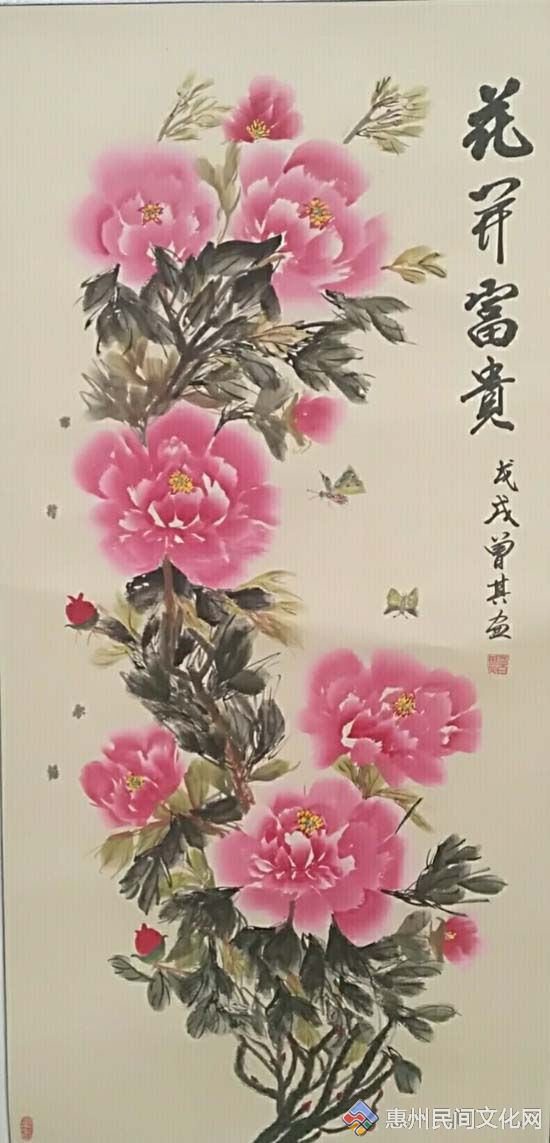 花开富貴
戊戌曾其画
惠州民间文化网